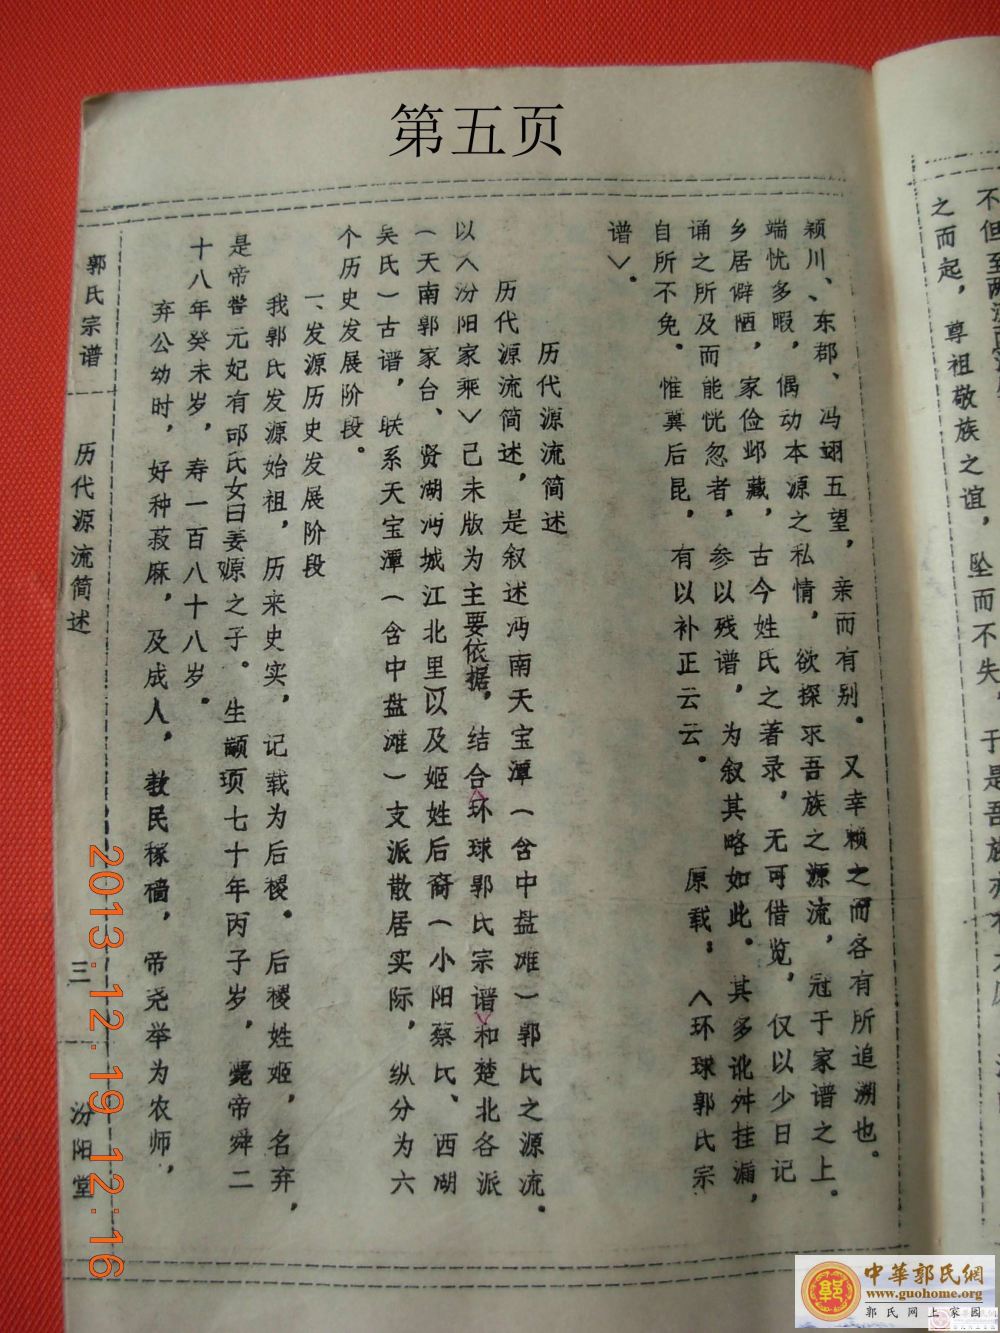 第五页
不但至两
之而起，尊祖敬族之谊，坠而不失，于是吾族亦
颖川、、东郡、冯翊五望，亲而有别。又幸赖之而各有所追溯也。
端忧多暇，偶动本源之私情，欲探求吾族之源流，冠于家谱之上。
乡居僻陋，家俭邺藏，古今姓氏之著录，无可借览，仅以少日记
诵之所及而能恍忽者，参以残谱，为叙其略如此。其多讹舛挂漏，
自所不免。惟冀后昆，有以补正云云。 原载：〈环球郭氏宗
谱〉。
历代源流简述
历代源流简述，是叙述沔南天宝潭（含中盘滩）郭氏之源流。
以〈汾阳家乘〉己未版为主要依据，结合环球郭氏宗谱和楚北各派
（天南郭家台、贤湖沔城江北里以及姬姓后裔（小阳蔡氏、西湖
吴氏）古谱，联系天宝潭（含中盘滩）支派散居实际，纵分为六
个历史发展阶段。
一、发源历史发展阶段
我郭氏发源始祖，历来史实，记载为后稷。后稷姓姬，名弃，
是帝喾元妃有邰氏女曰姜嫄之子。生颛顼七十年丙子岁，薨帝舜二
十八年癸未岁，寿一百八十八岁。
弃公幼时，好种菽麻，及成人，教民稼穑，帝尧举为农师，
郭氏宗谱
历代源流简述
三
汾阳堂
2013.12.19 12:16
郭
中華郭氏網
www.guohome.org
郭氏网上家园